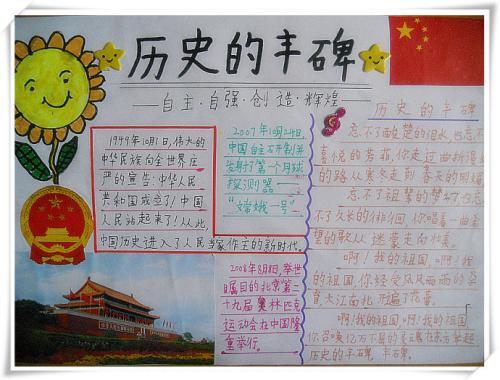 历史的丰碑
—自主·自强·创造·辉煌—
1949年10月1日,伟大的
中华民族向全世界庄
严的宣告:中华人民
共和国成立了!中国
人民站起来了!从此,
中国历史进入了人民当家作主的新时代。
2007年10月24日,
中国自主研制并
发射了第一个月球
探测器——
"嫦娥一号"
2008年8月8日,举世
瞩目的北京第二
十九届奥林匹克
运动会在中国隆
重举行。
历史的丰碑
忘不了 的泪水 也忘不
喜悦的芳菲,你走过曲折漫
的路从寒冬走到春天的明媚
忘不了祖辈的梦幻 也忘
不了久长的徘徊,你唱着一曲
望的歌从迷蒙走向
啊!我的祖国,啊!我
的祖国,你经受风风雨雨的
育大江南北开遍了花蕾。
啊!我的祖国,啊!我的祖国
你召唤亿万不屈的
历史的丰碑,丰碑。